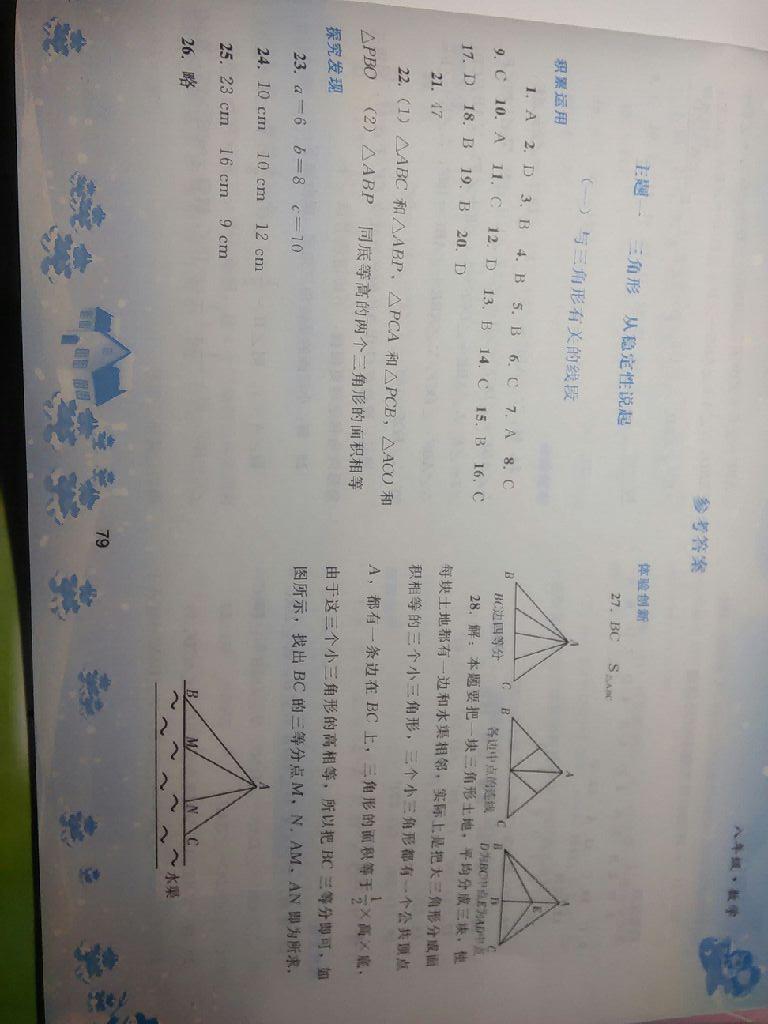 八年级·数学
参考答案
主题一 三角形 从稳定性说起
（一）与三角形有关的线段
积累运用
1. A 2. D 3. B 4. B 5. B 6. C 7. A 8. C
9. C 10. A 11. C 12. D 13. B 14. C 15. B 16. C
17. D 18. B 19. B 20. D
21. 47
22. （1）△ABC 和△ABP、△PCA 和△PCB、△ACO 和
△PBO （2）△ABP 同底等高的两个三角形的面积相等
探究发现
23. a=6 b=8 c=10
24. 10 cm 10 cm 12 cm
25. 23 cm 16 cm 9 cm
26. 略
体验创新
27. BC S△ABC
A
B C
BC边四等分
A
B C
各边中点的连线
A
E
B D C
D为BC中点E为AD中点
28. 解：本题要把一块三角形土地，平均分成三块，使
每块土地都有一边和水渠相邻，实际上是把大三角形分成面
积相等的三个小三角形，三个小三角形都有一个公共顶点
A，都有一条边在 BC 上，三角形的面积等于1/2×高×底，
由于这三个小三角形的高相等，所以把 BC 三等分即可，如
图所示，找出 BC 的三等分点 M、N，AM、AN 即为所求．
A
B M N C
水渠
79